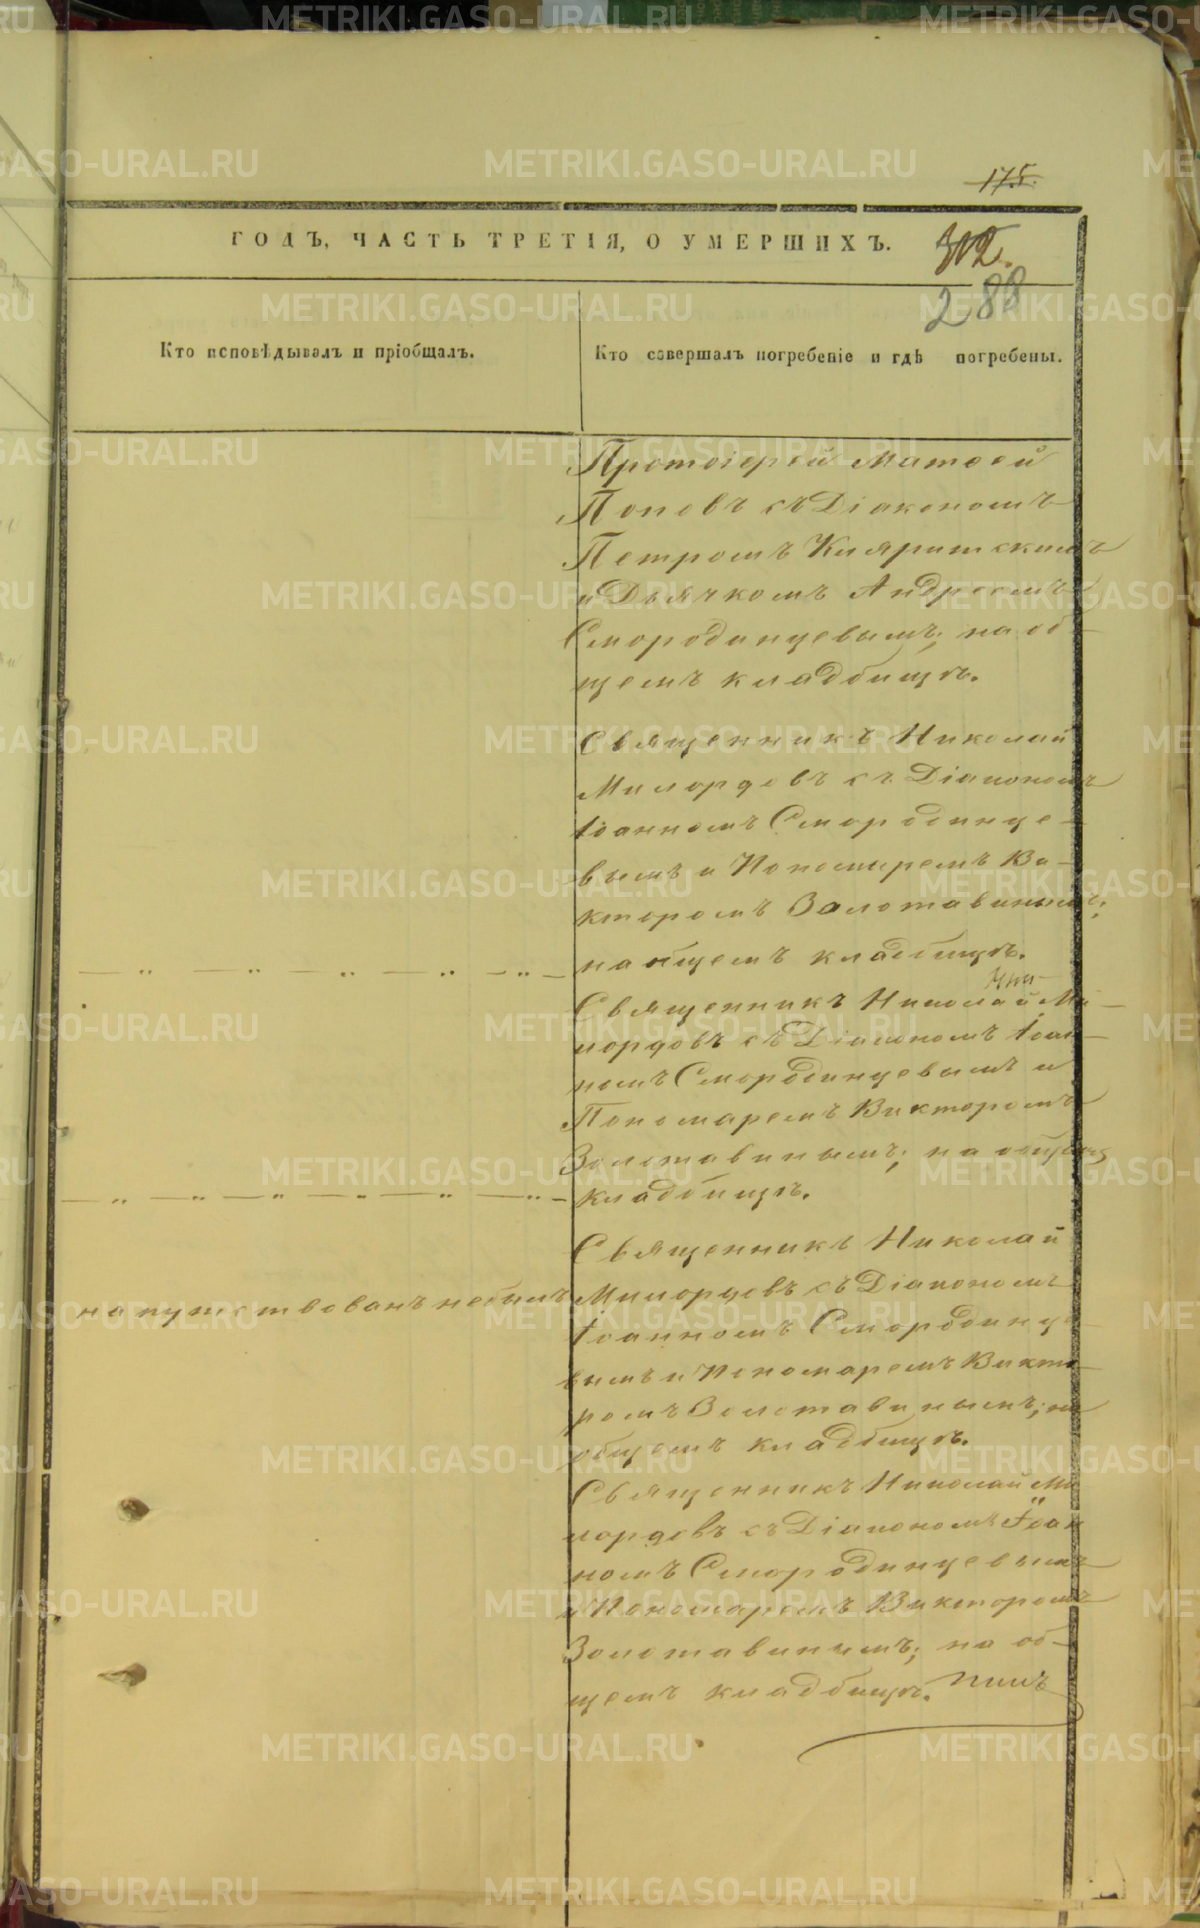 175.
ГОДЪ, ЧАСТЬ ТРЕТІЯ, О УМЕРШИХЪ.
302.
288
Кто исповѣдывалъ и пріобщалъ.
Кто совершалъ погребеніе и гдѣ погребены.
Протоіерей Матѳей
Поповъ съ Діакономъ
Петромъ
и Дьячкомъ Андреемъ
Смородинцевымъ; на об-
щемъ кладбищѣ.
Священникъ Николай
Милордовъ съ Діакономъ
Іоанномъ Смородинце-
вымъ и Пономаремъ Ви-
кторомъ Золотавинымъ;
на общемъ кладбищѣ.
Священникъ Николай Ми-
лордовъ съ Діакономъ Іоан-
номъ Смородинцевымъ и
Пономаремъ Викторомъ
Золотавинымъ; на общемъ
кладбищѣ.
напутствованъ небылъ
Священникъ Николай
Милордовъ съ Діакономъ
Іоанномъ Смородинце-
вымъ и Пономаремъ Викто-
ромъ Золотавинымъ; на
общемъ кладбищѣ.
Священникъ Николай Ми
лордовъ съ Діакономъ Іоан
номъ Смородинцевымъ
и Пономаремъ Викторомъ
Золотавинымъ; на об-
щемъ кладбищѣ.
METRIKI.GASO-URAL.RU